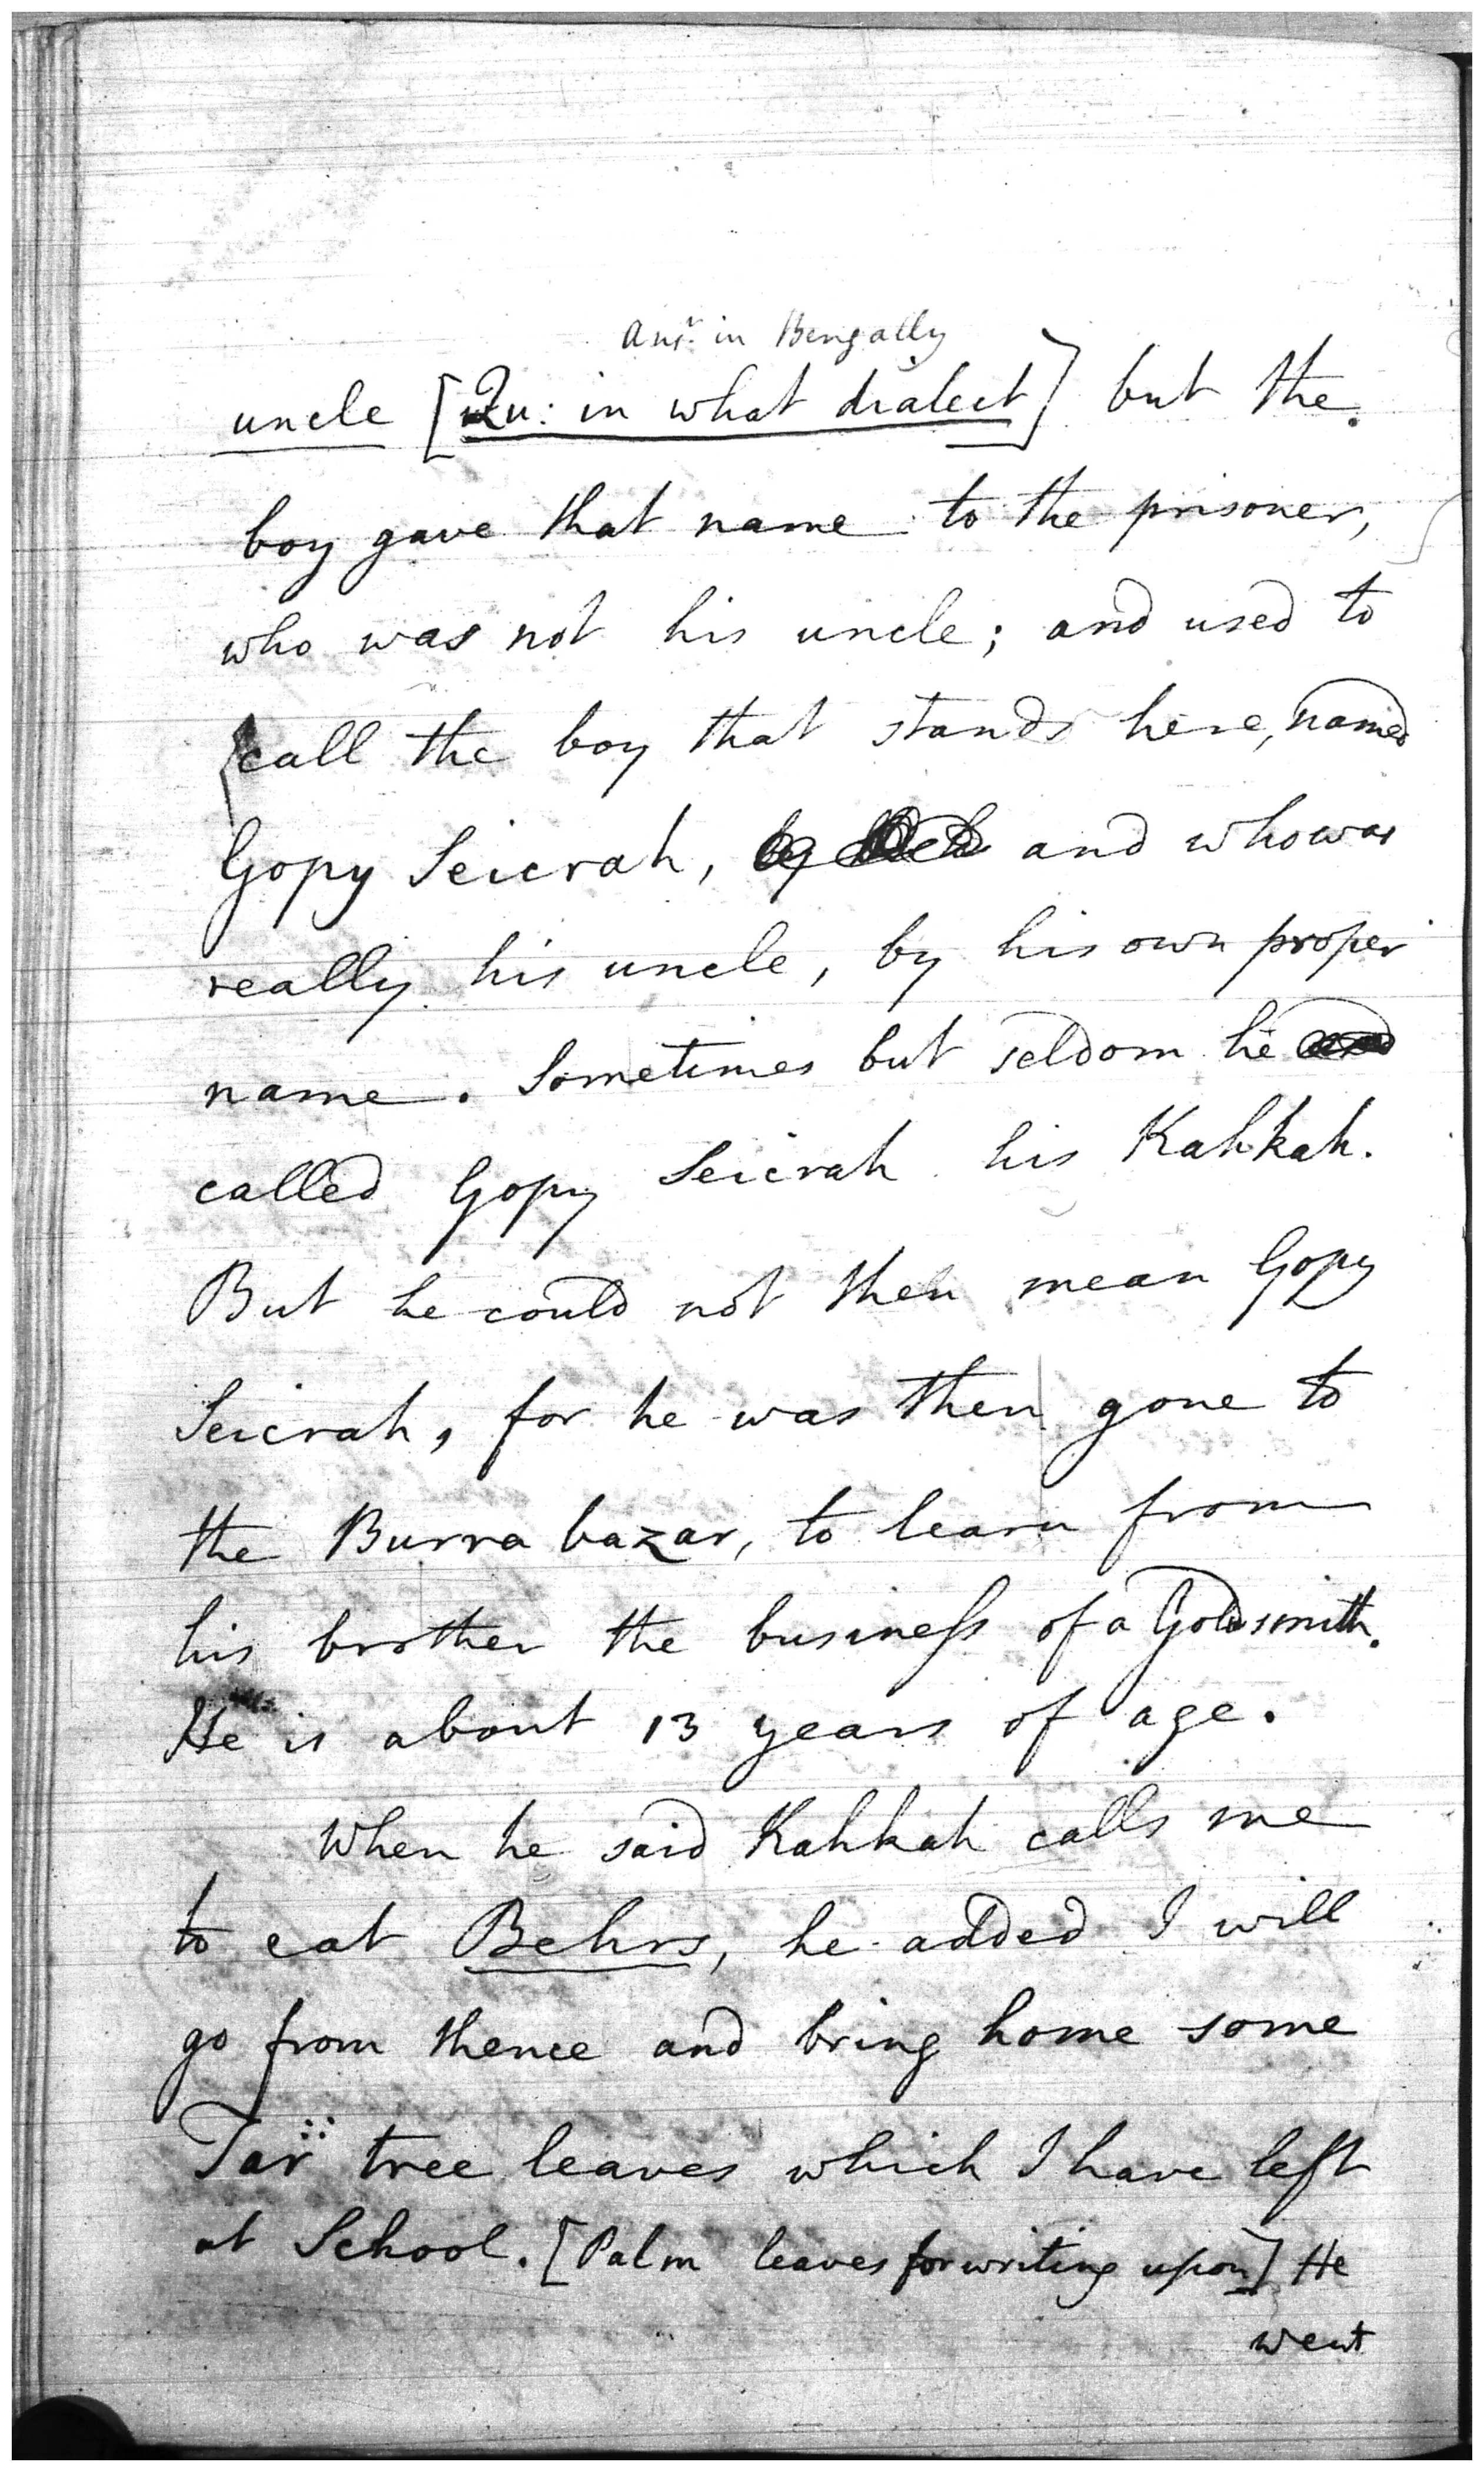 Ansr. in Bengally
uncle [Qu: in what dialect] but the
boy gave that name to the prisoner,
who was not his uncle; and used to
call the boy that stands here, named
Gopy Seicrah, and who was
really his uncle, by his own proper
name. Sometimes but seldom he
called Gopy Seicrah his Kahkah.
But he could not then mean Gopy
Seicrah, for he was then gone to
the Burra bazar, to learn from
his brother the business of a Goldsmith.
He is about 13 years of age.
When he said Kahkah calls me
to eat Behrs, he added I will
go from thence and bring home some
Tar tree leaves which I have left
at School. [Palm leaves for writing upon] He
went